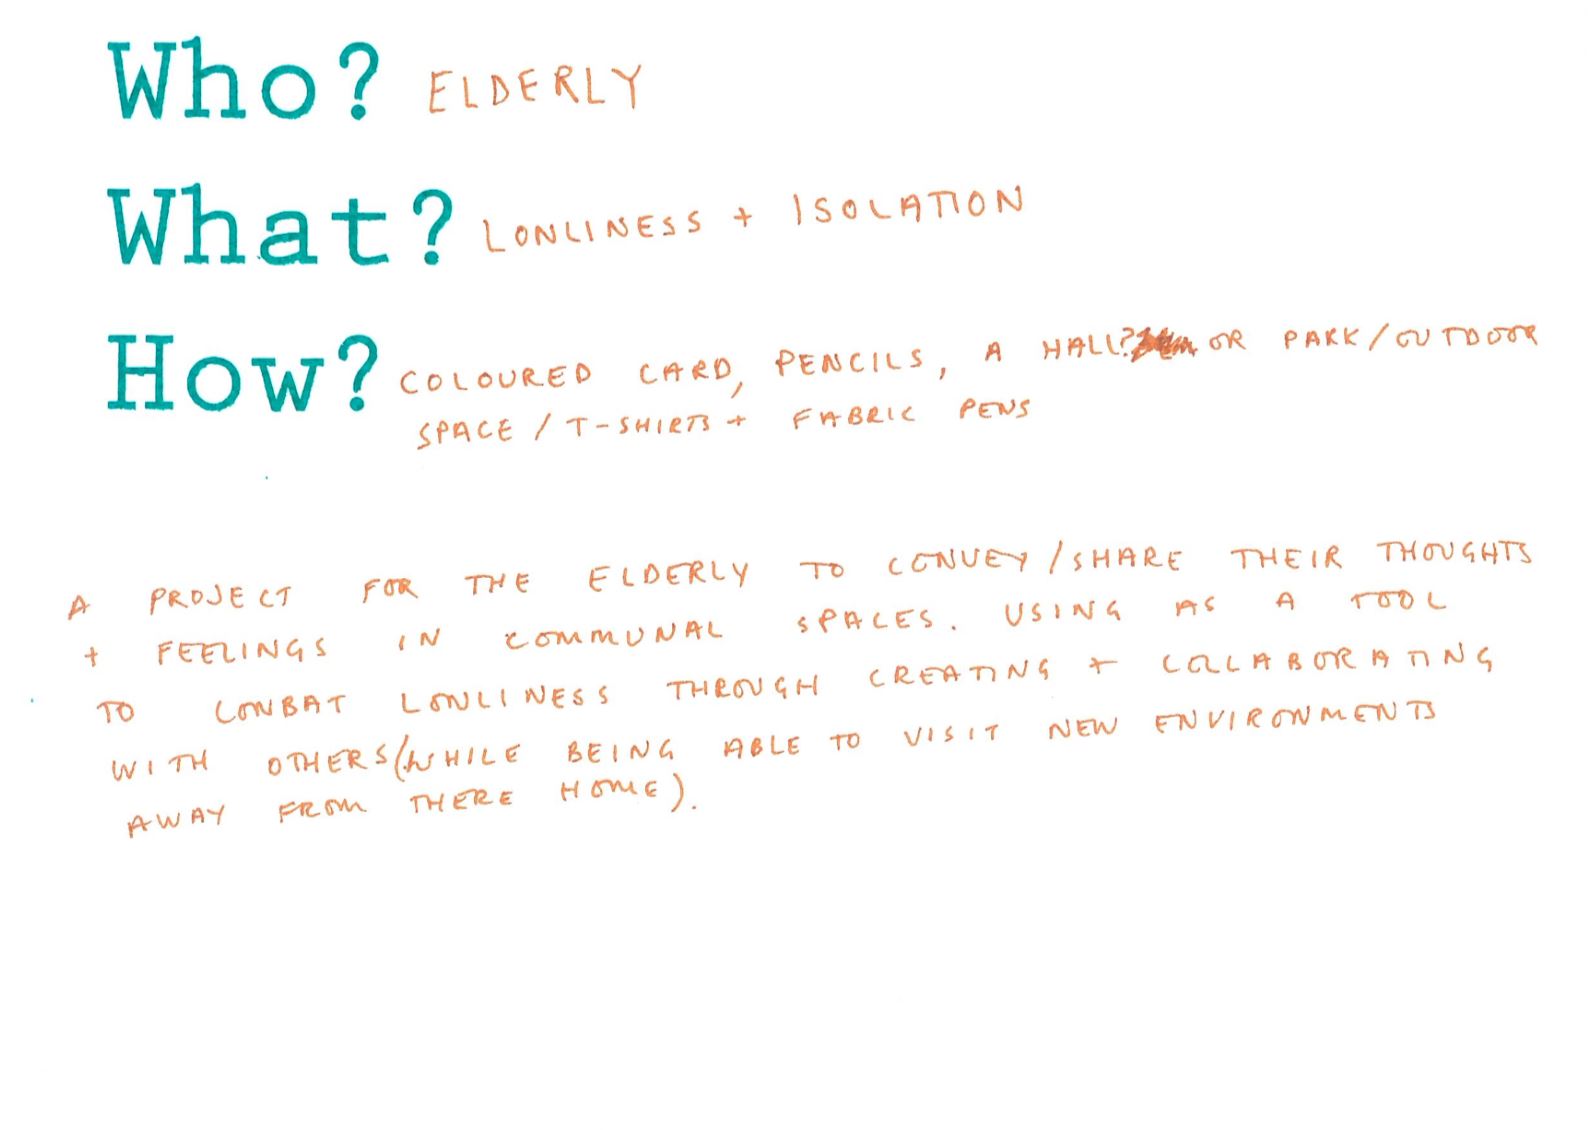 Who? ELDERLY
What? LONLINESS + ISOLATION
How? COLOURED CARD, PENCILS, A HALL? OR PARK/OUTDOOR
SPACE / T-SHIRTS + FABRIC PENS
A PROJECT FOR THE ELDERLY TO CONVEY/SHARE THEIR THOUGHTS
+ FEELINGS IN COMMUNAL SPACES. USING AS A TOOL
TO CONBAT LONLINESS THROUGH CREATING + COLLABORATING
WITH OTHERS (WHILE BEING ABLE TO VISIT NEW ENVIRONMENTS
AWAY FROM THERE HOME).